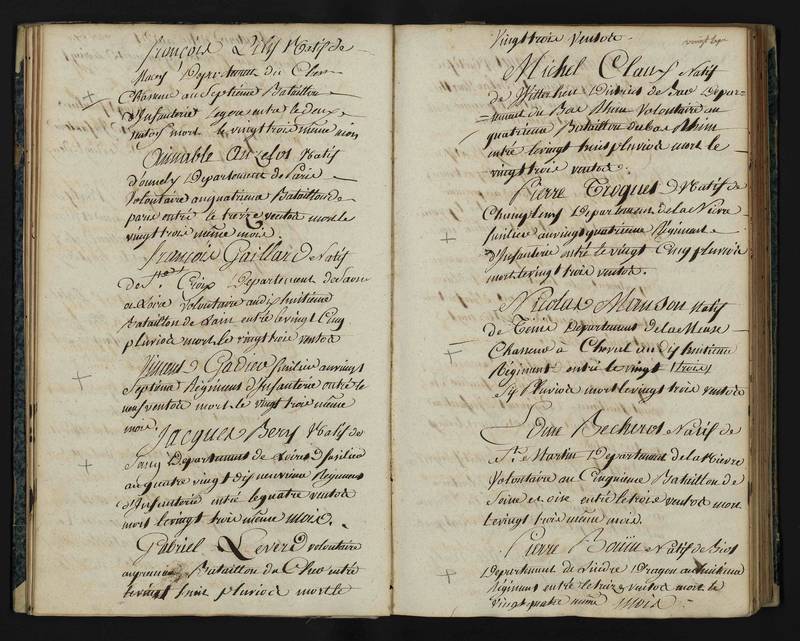 françois Lely Natif de
Département du Cher
Chasseur au Septième Bataillon
d'Infanterie Légère entré le deux
mort le vingt trois même mois
Aimable Natif
Département de Paris
Volontaire au quatrième Bataillon de
paris entré le treize ventose mort le
vingt trois même mois.
françois Gaillard Natif
de Ste. Croix Département de Saone
et Loire volontaire au dix huitième
Bataillon de Lain entré le vingt Cinq
pluviose mort le vingt trois ventose
Vincent Gadiou fusilier au vingt
Septième Régiment d'Infanterie entré le
neuf ventose mort le vingt trois même
mois.
Jacques Bery Natif de
Département de fusilier
au quatre vingt dix neuvième Régiment
d'Infanterie entré le quatre ventose
mort le vingt trois même mois.
Gabriel Leverd volontaire
au premier Bataillon du Cher entré
le vingt huit pluviose mort le
vingt trois ventose.
Michel Claus Natif
de District de Dépar=
=tement du Bas Rhin Volontaire au
quatrième Bataillon du bas Rhin
entré le vingt trois pluviose mort le
vingt trois ventose.
Pierre Croques Natif de
Département de la Nievre
fusilier au vingt quatrième Régiment
d'Infanterie entré le vingt Cinq pluviose
mort le vingt trois ventose.
Nicolas Manson Natif
de Département de la Meuse
Chasseur à Cheval au dix huitième
Régiment entré le vingt trois
Six Pluviose mort le vingt trois ventose
Becheros Natif de
St. Martin Département de la Nievre
Volontaire au Cinquieme Bataillon de
Seine et oise entré le trois ventose mort
le vingt trois même mois.
Pierre Natif de
Département de Dragon au huitieme
Régiment entré le treize ventose mort le
vingt quatre même mois